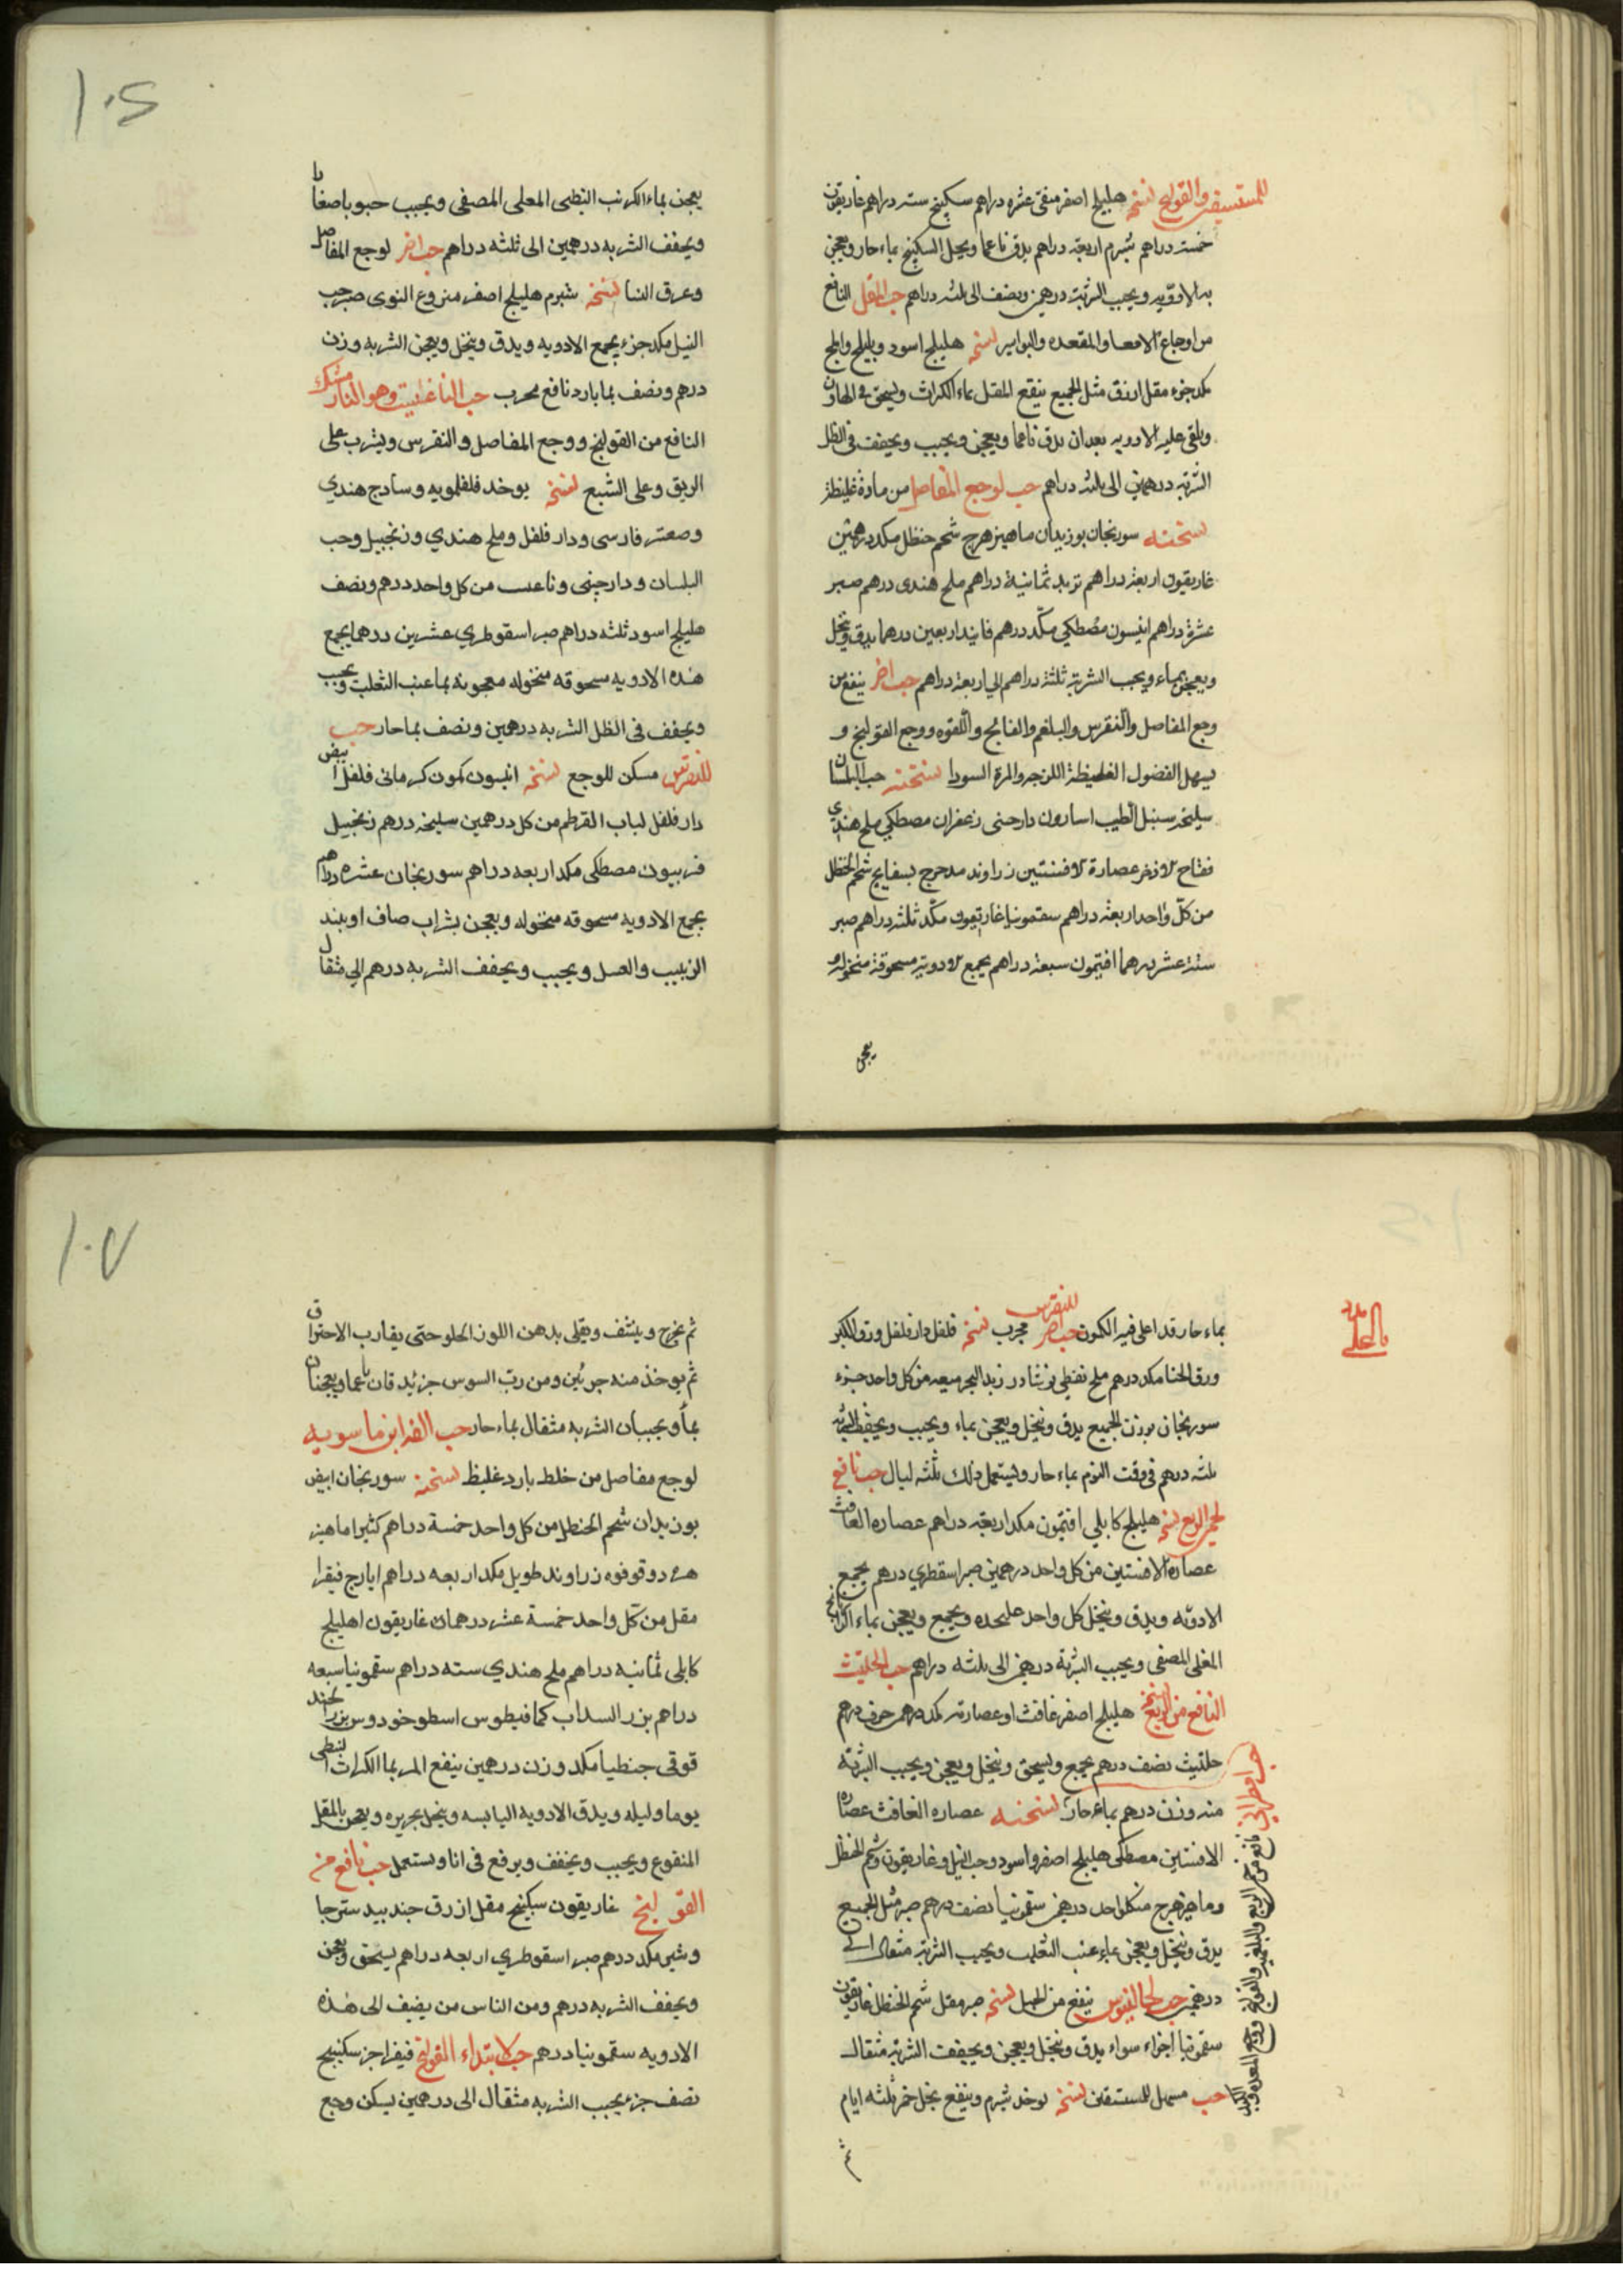 للمستسقين والقولنج نسخته هليلج اصفر منقى عشره دراهم سكبينج سته دراهم غاريقون
خمسه دراهم شبرم اربعة دراهم يدق ناعما ويحل السكبينج بماء حار ويعجن
به الادويه ويحبب الشربة درهمين ونصف الى ثلثه دراهم حب المقل النافع
من اوجاع الامعا والمقعده والبواسير نسخته هليلج اسود وبليلج واملج
مكد جزء مقل ازرق مثل الجميع ينقع المقل بماء الكراث ويسحق في الهاون
ويلقى عليه الادويه بعد ان يدق ناعما ويعجن ويحبب ويجفف في الظل
الشربه درهمين الى ثلثه دراهم حب لوجع المفاصل من مادة غليظة
نسخته سورنجان بوزيدان ماهيزهرج شحم حنظل مكد درهمين
غاريقون اربعة دراهم تربد ثمانية دراهم ملح هندى درهم صبر
عشرة دراهم انيسون مصطكي مكد درهم فانيد اربعين درهما يدق وينخل
ويعجن بماء ويحبب الشربة ثلثة دراهم الي اربعة دراهم حب اخر ينفع من
وجع المفاصل والنقرس والبلغم والفالج واللقوه ووجع القولنج و
يسهل الفضول الغليظة اللزجه والمرة السودا نسخته حب البلسان
سليخه سنبل الطيب اسارون دارصنى زعفران مصطكي ملح هندي
فقاح الاذخر عصارة الافسنتين زراوند مدحرج بسفايج شحم الحنظل
من كل واحد اربعة دراهم سقمونيا غاريقون مكد ثلثه دراهم صبر
ستة عشر درهما افتيمون سبعة دراهم يجمع الادويه مسحوقة منخوله و
يعجن
١٠٦
يعجن بماء الكرنب النبطى المغلى المصفى ويحبب حبوبا صغارا
ويجفف الشربه درهمين الى ثلثه دراهم حب اخر لوجع المفاصل
وعرق النسا نسخته شبرم هليلج اصفر منزوع النوى صبر حب
النيل مكد جزء يجمع الادويه ويدق وينخل ويعجن الشربه وزن
درهم ونصف بما بارد نافع مجرب حب الناغانيت وهو النارمشك
النافع من القولنج ووجع المفاصل والنقرس ويشرب على
الريق وعلى الشبع نسخته يوخد فلفلمويه وسادج هندي
وصعتر فارسى ودار فلفل وملح هندي وزنجبيل وحب
البلسان ودارجينى وناغست من كل واحد درهم ونصف
هليلج اسود ثلثه دراهم صبر اسقوطري عشرين درهما يجمع
هذه الادويه مسحوقه منخوله معجونه بما عنب الثعلب ويحبب
ويجفف فى الظل الشربه درهمين ونصف بما حار حب
للنقرس مسكن للوجع نسخته انيسون كمون كرمانى فلفل ابيض
دار فلفل لباب القرطم من كل درهمين سليخه درهم زنجبيل
فربيون مصطكى مكد اربعه دراهم سورنجان عشره دراهم
يجمع الادويه مسحوقه منخوله ويعجن بشراب صاف او بنبيد
الزبيب والعسل ويحبب ويجفف الشربه درهم الي مثقال
يا على مدد
بماء حار قد اغلى فيه الكمون حب اخر للنقرس مجرب نسخته فلفل دار فلفل ورق الكبر
ورق الحنا مكد درهم ملح نفطي نوشادر زبد البحر ميعه من كل واحد جزء
سورنجان بوزن الجميع يدق وينخل ويعجن بماء ويحبب ويجفف الشربه
ثلثه درهم فى وقت النوم بماء حار ويستعمل ذلك ثلثه ليال حب نافع
لحمى الربع نسخته هليلج كابلي افتيمون مكد اربعة دراهم عصاره الغافث
عصارة الافسنتين من كل واحد درهمين صبر اسقطري درهم يجمع
الادويه ويدق وينخل كل واحد عليحده ويجمع ويعجن بماء الرازيانج
المغلى المصفى ويحبب الشربة درهمين الى ثلثه دراهم حب الحلتيث
النافع من الربع نسخته هليلج اصفر غافث او عصارته مكد درهم حرف درهم
حلتيث نصف درهم يجمع ويسحق وينخل ويعجن ويحبب الشربة
منه وزن درهم بماء حار نسخته عصاره الغافث عصارة
الافسنتين مصطكى هليلج اصفر واسود وحب النيل وغاريقون وشحم الحنظل
وماهيزهرج من كل واحد درهمين سقمونيا نصف درهم صبر مثل الجميع
يدق وينخل ويعجن بماء عنب الثعلب ويحبب الشربة مثقال الى
درهمين حب لجالينوس ينفع من نسخته صبر مقل شحم الحنظل غاريقون
سقمونيا اجزاء سواء يدق وينخل ويعجن ويجفف الشربة مثقال
حب مسهل للمستسقين نسخته يوخد شبرم وينقع بخل خمر ثلثه ايام
ثم
نافع من حمى الربع والبلغميه والقولنج ووجع المعده والكبد
١٠٧
ثم يخرج وينشف ويقلى بدهن اللوز الحلو حتى يقارب الاحتراق
ثم يوخذ منه جزئين ومن رب السوس جزء يدقان ناعما ويعجنان
بماء ويحببان الشربه مثقال بماء حار حب الفرابن ماسويه
لوجع مفاصل من خلط بارد غليظ نسخته سورنجان ابيض
بوزيدان شحم الحنظل من كل واحد خمسة دراهم كثيرا ماهيز
هرج دوقو فوه زراوند طويل مكد اربعه دراهم ايارج فيقرا
مقل من كل واحد خمسة عشر درهمان غاريقون اهليلج
كابلى ثمانيه دراهم ملح هندي سته دراهم سقمونيا سبعه
دراهم بزر السداب كمافيطوس اسطوخودوس بزر الحند
قوقى جنطيانا مكد وزن درهمين ينقع المر بما الكراث النبطى
يوما وليله ويدق الادويه اليابسه وينخل بحريره ويعجن بالمقل
المنقوع ويحبب ويجفف ويرفع فى انا ويستعمل حب نافع من
القولنج غاريقون سكبينج مقل ازرق جندبيدستر جا
وشير مكد درهم صبر اسقوطري اربعه دراهم يسحق ويعجن
ويجفف الشربه درهم ومن الناس من يضيف الى هذه
الادويه سقمونيا درهم حب لابتداء القولنج فيقرا جز سكبينج
نصف جزء يحبب الشربه مثقال الى درهمين يسكن وجع